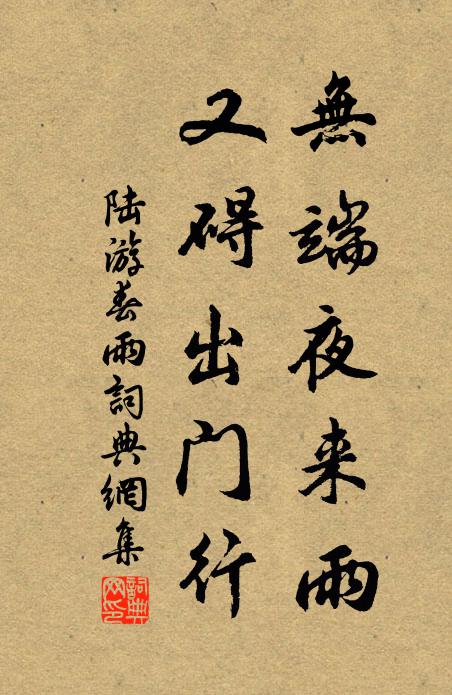 無端夜来雨
又碍出门行
陆游春雨詞典網集
詞典网印